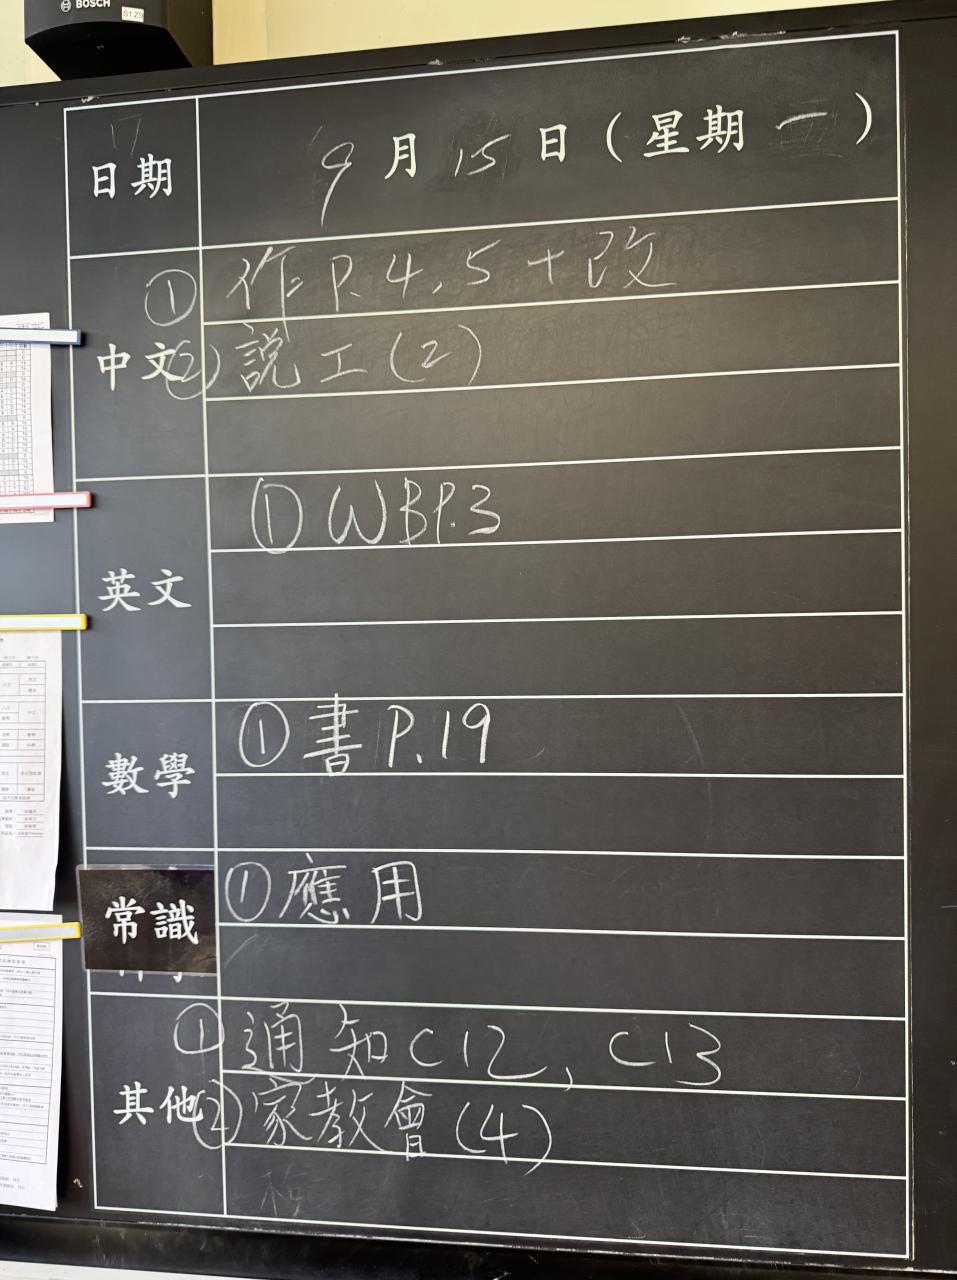 BOSCH
S1 Z9
日期 9月15日(星期一)
中文 ① 作 P.4,5+改
② 説工(2)
英文 ① WB P.3
數學 ① 書 P.19
常識 ① 應用
其他 ① 通知 C12, C13
② 家教會(4)